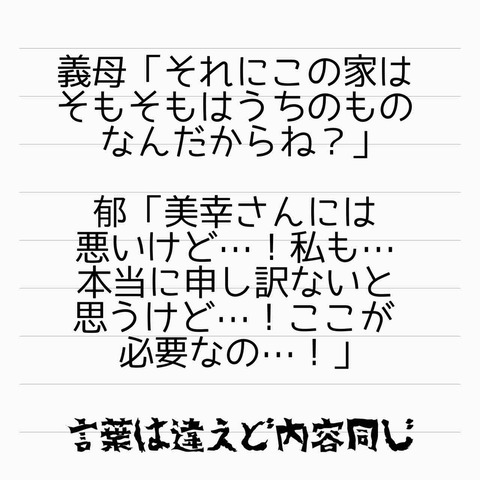 義母「それにこの家は
そもそもはうちのもの
なんだからね？」
郁「美幸さんには
悪いけど…！私も…
本当に申し訳ないと
思うけど…！ここが
必要なの…！」
言葉は違えど内容同じ